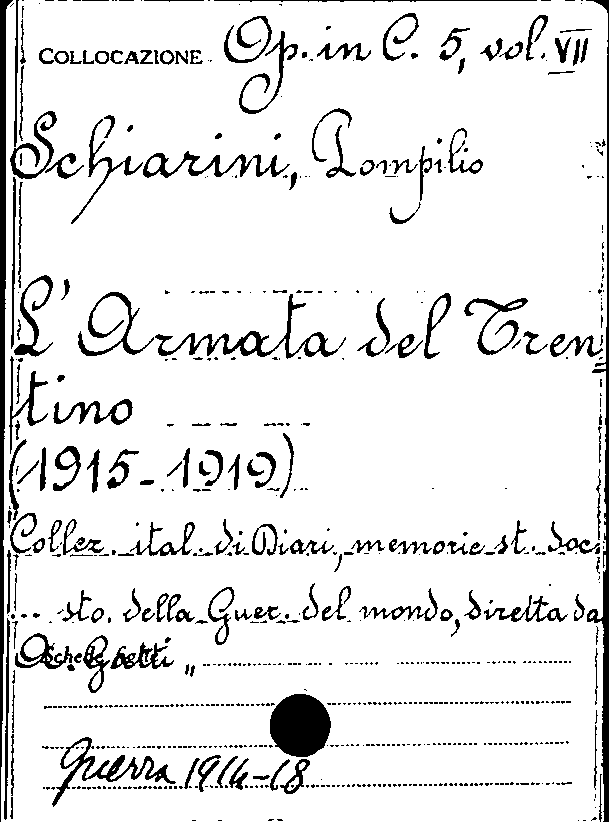 COLLOCAZIONE Op. in C. 5, vol. VII
Schiarini, Pompilio
L'Armata del Tren=
tino
(1915-1919)
Collez. ital. di Diari, memorie st. doc.
... sto. della Guer. del mondo, diretta da
A. Gatti „
Guerra 1914-18